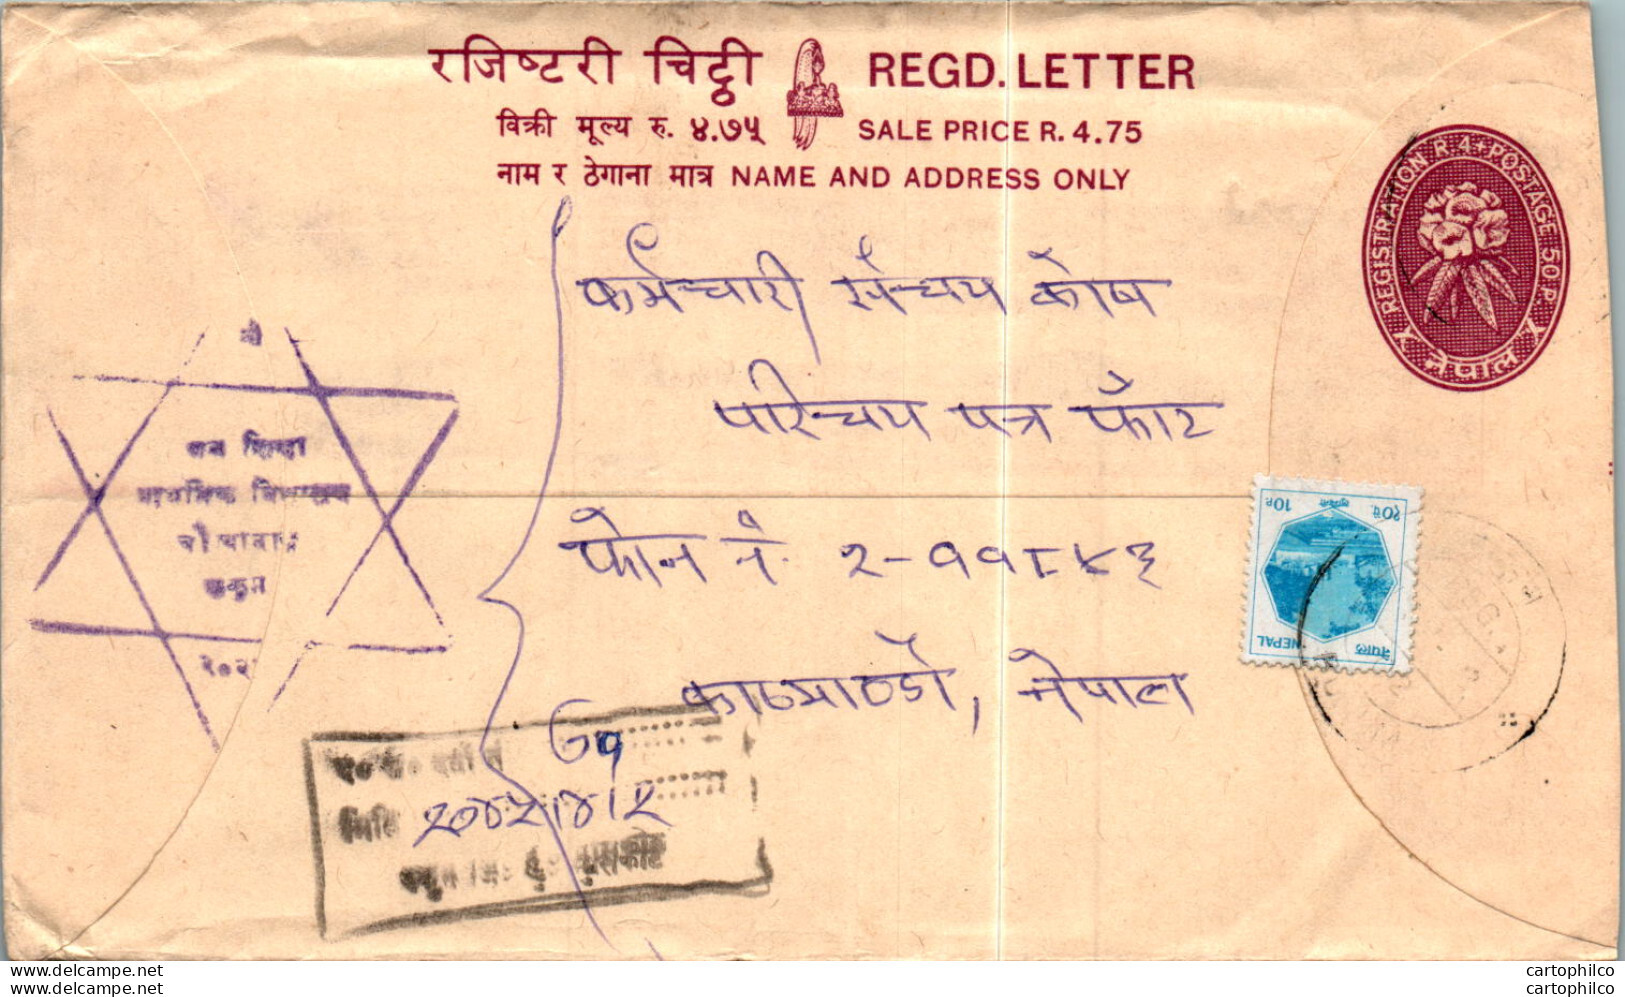 रजिष्टरी चिट्ठी REGD. LETTER
विक्री मूल्य रु. ४.७५ SALE PRICE R. 4.75
नाम र ठेगाना मात्र NAME AND ADDRESS ONLY
REGISTRATION R.4+POSTAGE 50 P.
नेपाल
कर्मचारी संचय कोष
परिचय पत्र फाँट
फोन नं. २-११८४३
काठमाण्डौ, नेपाल
श्री
जन शिक्षा
प्राथमिक विद्यालय
10P. १०पै.
नेपाल NEPAL
मिति २०४२।४।२
www.delcampe.net
www.delcampe.net
cartophilco
cartophilco